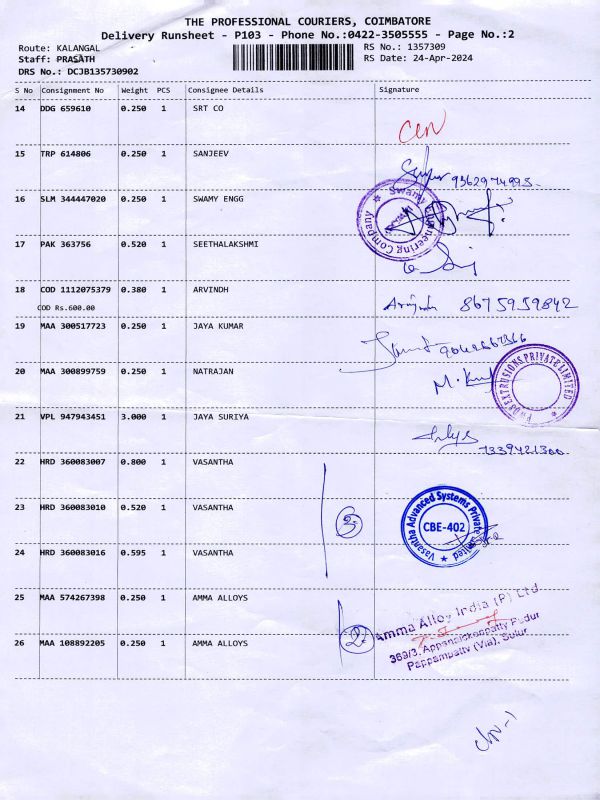 THE PROFESSIONAL COURIERS, COIMBATORE
Delivery Runsheet - P103 - Phone No.:0422-3505555 - Page No.:2
Route: KALANGAL
RS No.: 1357309
Staff: PRASATH
RS Date: 24-Apr-2024
DRS No.: DCJB135730902
S No Consignment No Weight PCS Consignee Details Signature
14 DDG 659610 0.250 1 SRT CO
15 TRP 614806 0.250 1 SANJEEV
9362974995
16 SLM 344447020 0.250 1 SWAMY ENGG
Swamy Engineering Company
17 PAK 363756 0.520 1 SEETHALAKSHMI
18 COD 1112075379 0.380 1 ARVINDH
COD Rs.600.00
8675959842
19 MAA 300517723 0.250 1 JAYA KUMAR
20 MAA 300899759 0.250 1 NATRAJAN
EXTRUSIONS PRIVATE LIMITED
21 VPL 947943451 3.000 1 JAYA SURIYA
7339421300
22 HRD 360083007 0.800 1 VASANTHA
23 HRD 360083010 0.520 1 VASANTHA
3
Vasantha Advanced Systems Private Limited
CBE-402
24 HRD 360083016 0.595 1 VASANTHA
25 MAA 574267398 0.250 1 AMMA ALLOYS
2
Amma Alloy India (P) Ltd
26 MAA 108892205 0.250 1 AMMA ALLOYS
369/3, Appanaickenpatty Pudur
Pappampatty (Via), Sulur